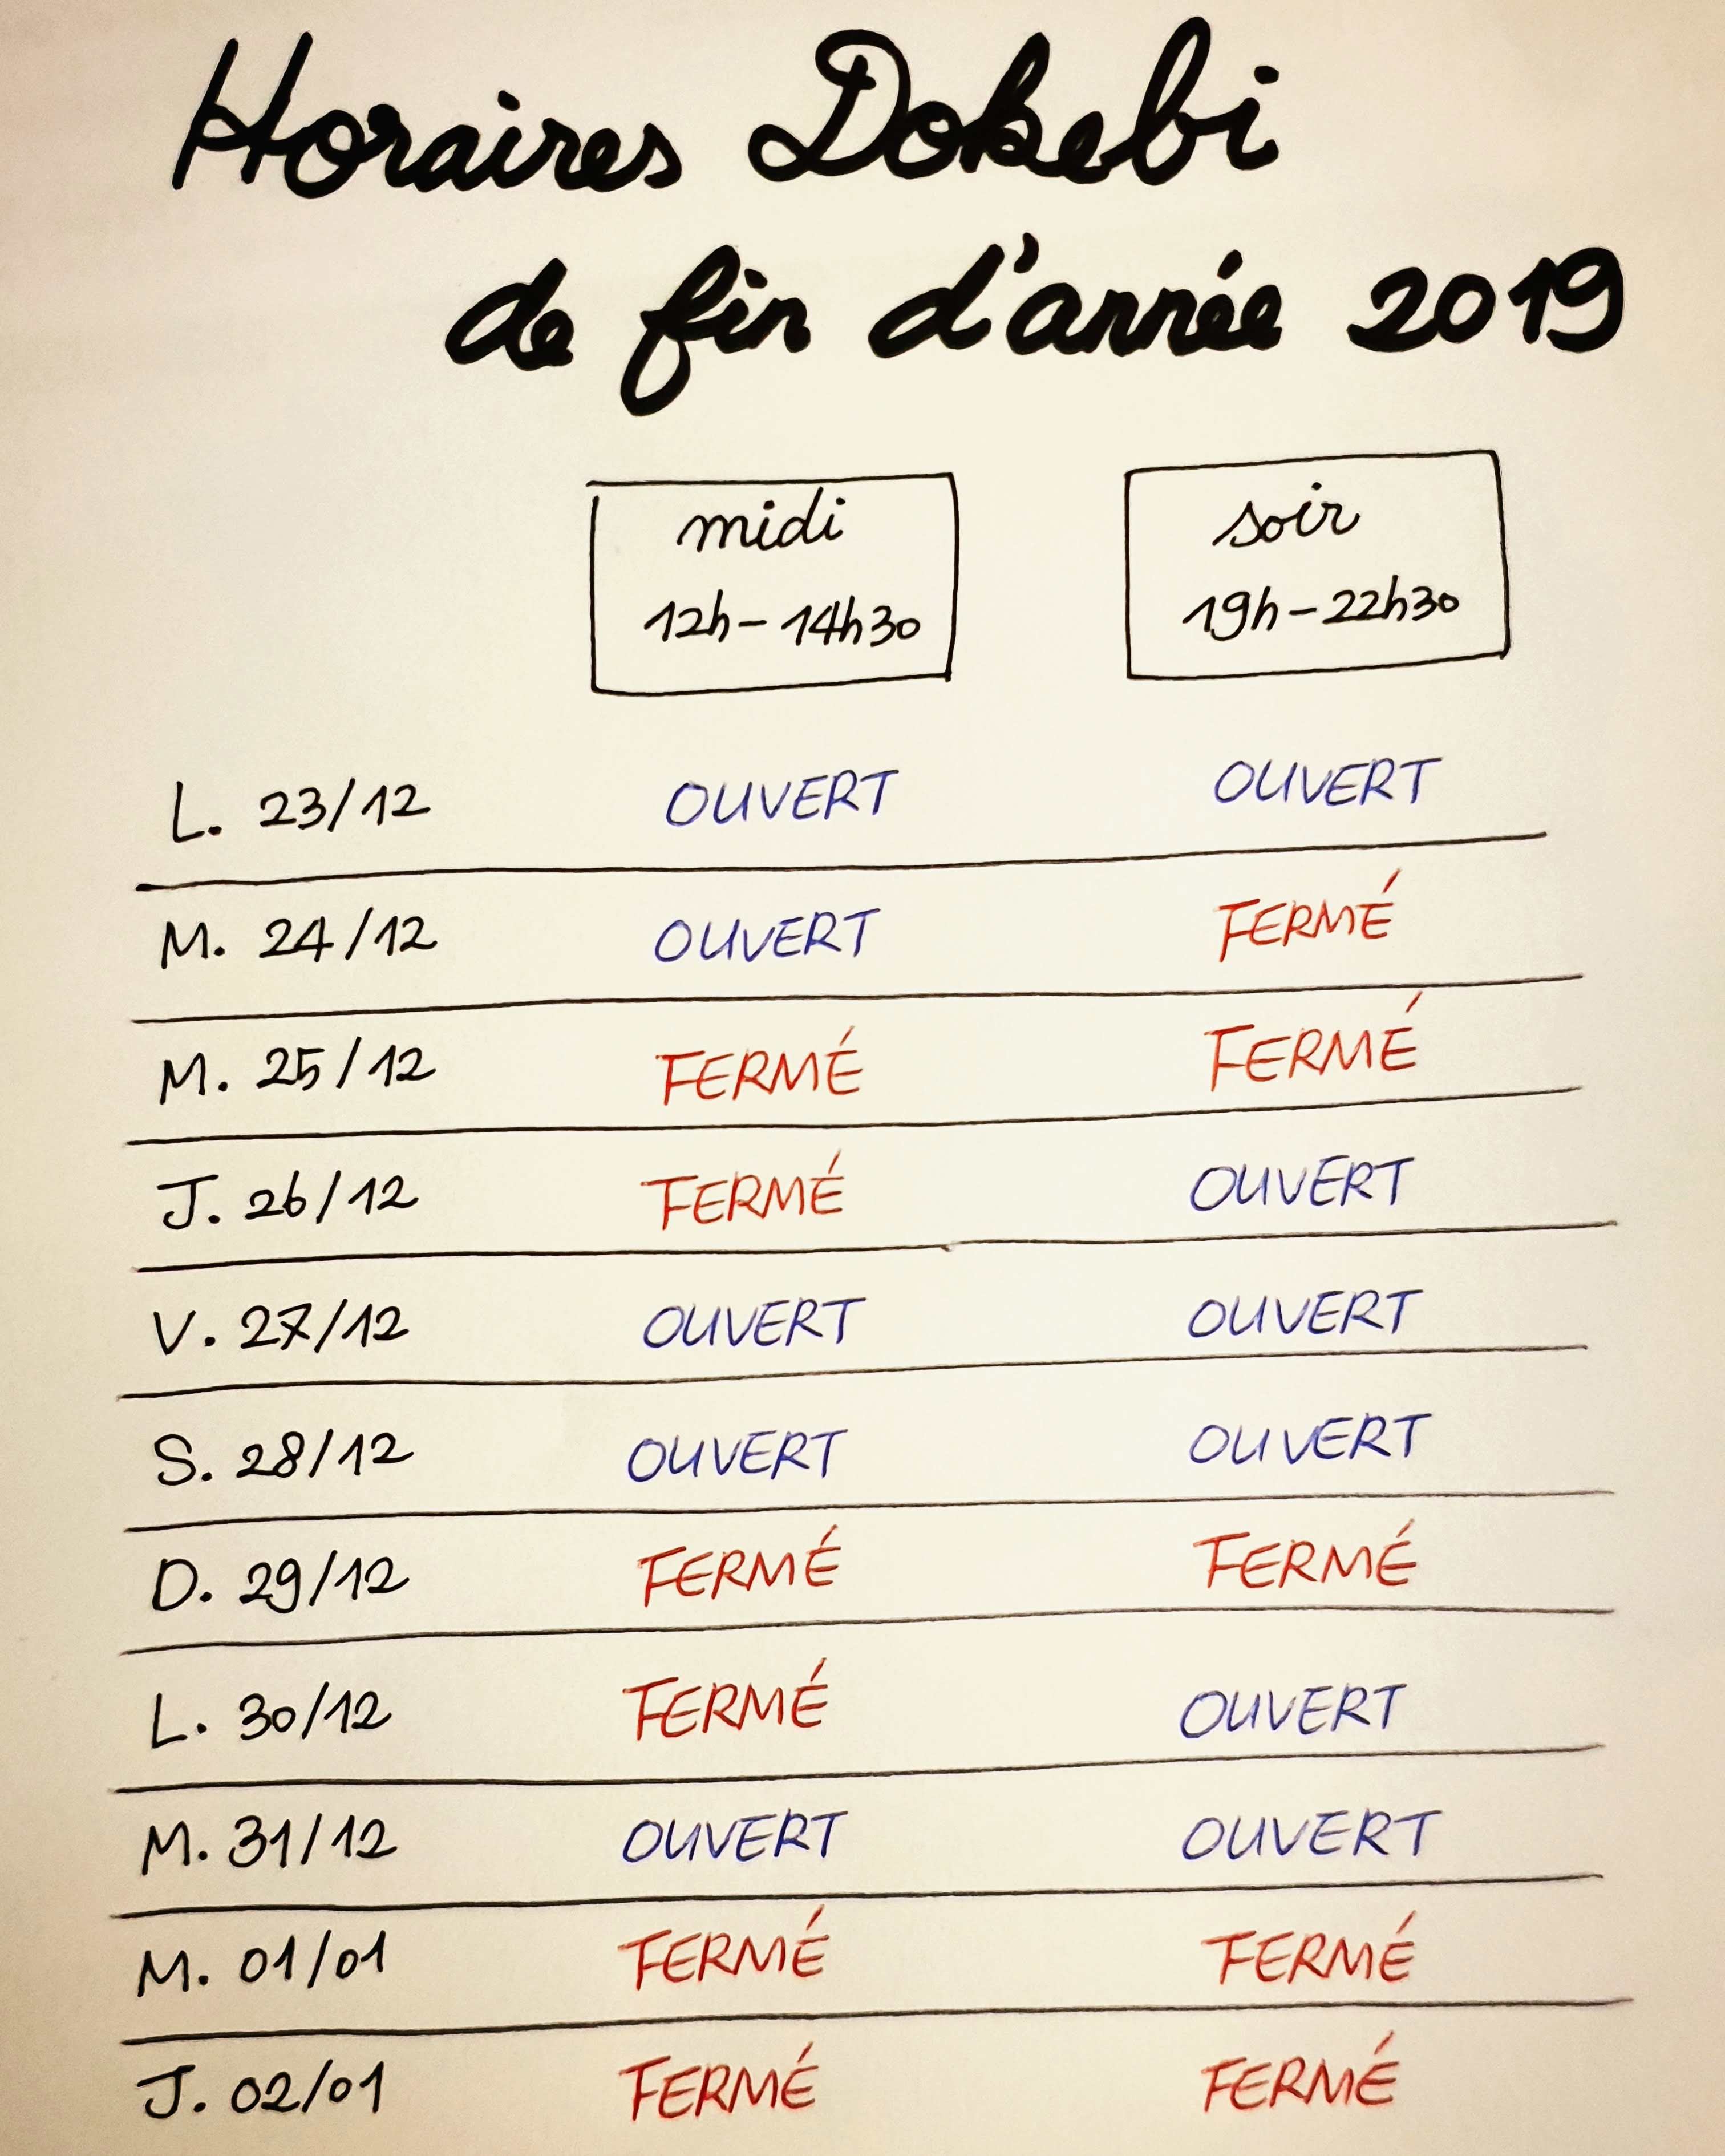 Horaires Dokebi
de fin d'année 2019
midi soir
12h-14h30 19h-22h30
L. 23/12 OUVERT OUVERT
M. 24/12 OUVERT FERMÉ
M. 25/12 FERMÉ FERMÉ
J. 26/12 FERMÉ OUVERT
V. 27/12 OUVERT OUVERT
S. 28/12 OUVERT OUVERT
D. 29/12 FERMÉ FERMÉ
L. 30/12 FERMÉ OUVERT
M. 31/12 OUVERT OUVERT
M. 01/01 FERMÉ FERMÉ
J. 02/01 FERMÉ FERMÉ